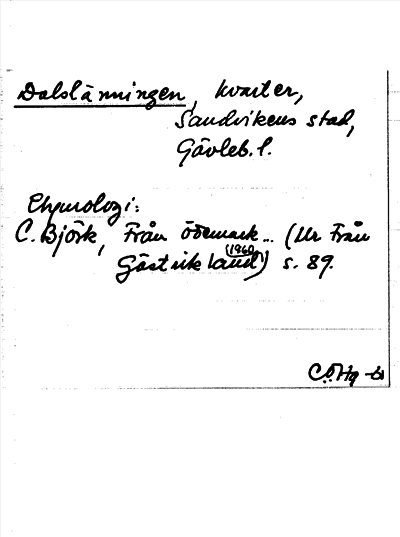 Dalslänningen, kvarter,
Sandvikens stad,
Gävleb. l.
Etymologi:
C. Björk, Från ödemark... (Ur Från
Gästrikland (1960)) s. 89.
C.Ö.Hg